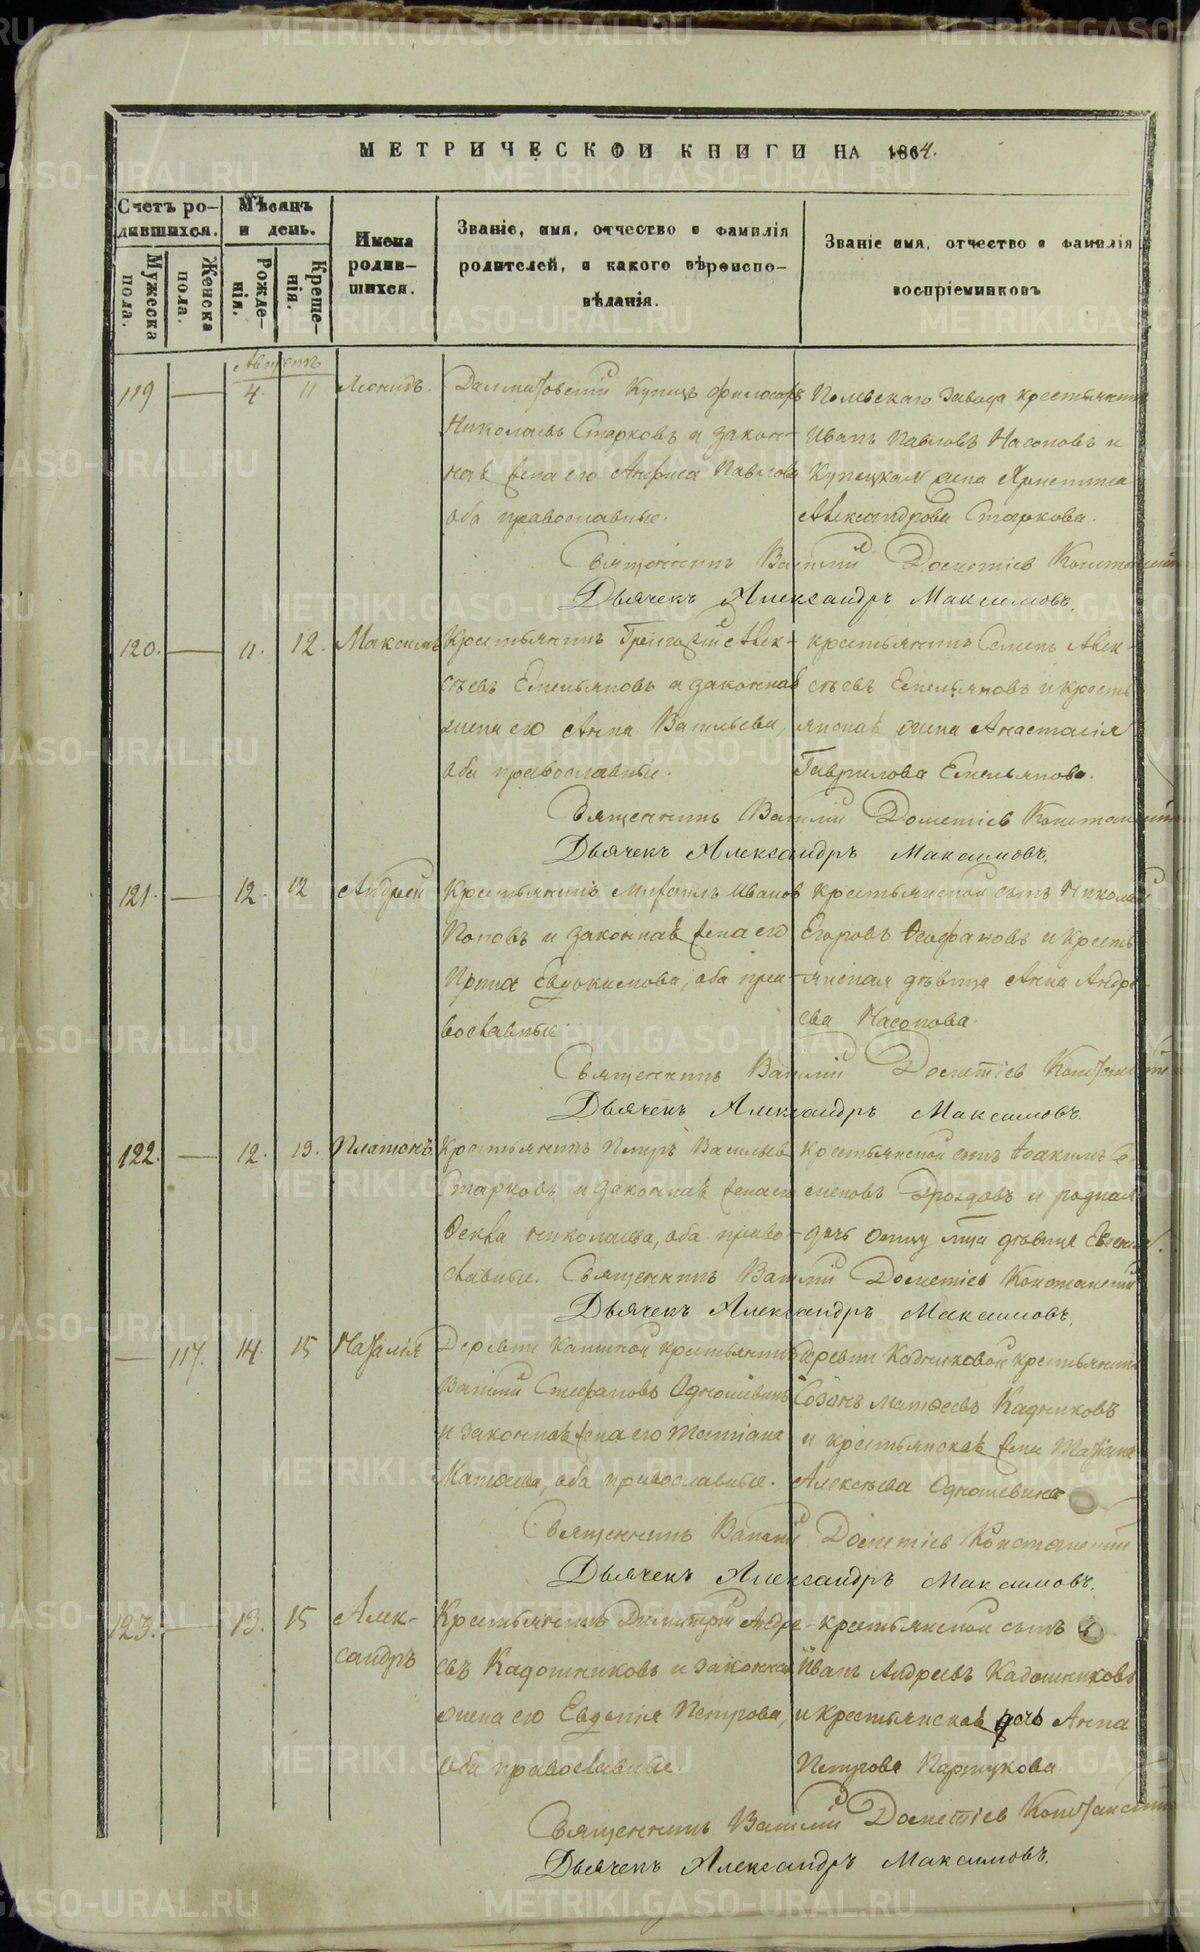 МЕТРИЧЕСКОЙ КНИГИ НА 1864.
Счетъ ро-
дившихся.
Мужеска пола.
Женска пола.
Мѣсяцъ
и день.
Рожде-
нія.
Креще-
нія.
Имена
родив-
шихся.
Званіе, имя, отчество и фамилія
родителей, и какого вѣроиспо-
вѣданія.
Званіе имя, отчество и фамилія
воспріемниковъ
Августъ
119 — 4. 11 Леонидъ.
Далматовскій Купецъ
Николаевъ Старковъ и закон-
ная жена его Анфиса Павлова
оба православные.
завода крестьянинъ
Иванъ Павловъ Насоновъ и
Купецкая жена Христина
Александрова Старкова.
Священникъ Василій Дометіев Константинъ
Дьячекъ Александръ Максимовъ.
120. — 11. 12. Максимъ
Крестьянинъ Григорій Алек-
сѣевъ Емельяновъ и законная
жена его Анна Васильева,
оба православные.
крестьянинъ Семенъ Алек-
сѣевъ Емельяновъ и кресть
янская жена Анастасія
Гаврилова Емельянова.
Священникъ Василій Дометіев
Дьячекъ Александръ Максимовъ.
121. — 12. 12 Андрей
Крестьянинъ Михаилъ Иванов
Поповъ и законная жена его
Ирина Евдокимова, оба пра-
вославные.
крестьянской сынъ Николай
Егоровъ Ѳеофановъ и кресть
янская дѣвица Анна Андре-
ева Насонова.
Священникъ Василій Дометіев
Дьячекъ Александръ Максимовъ.
122. — 12. 13. Платонъ.
Крестьянинъ Петръ Васильев
Старковъ и законная жена его
Ѳекла Николаева, оба право-
славные.
Крестьянской сынъ Іоакимъ Се-
меновъ Дроздовъ и родная
дѣвица
Священникъ Василій Дометіев
Дьячекъ Александръ Максимовъ.
— 117. 14. 15 Наталія
Деревни крестьянинъ
Василій Стефановъ Одношевинъ
и законная жена его Татіана
Матѳеева, оба православные.
Деревни Кадниковой крестьянинъ
Созонъ Матѳеевъ Кадниковъ
и крестьянская жена Татіана
Алексѣева Одношевина
Священникъ Василій Дометіев
Дьячекъ Александръ Максимовъ.
123. — 13. 15 Алек-
сандръ
Крестьянинъ Димитрій Андре-
евъ Кадошниковъ и законная
жена его Евдокія Петрова,
оба православные.
крестьянской сынъ
Иванъ Андреевъ Кадошниковъ
и крестьянская дочь Анна
Петрова Партукова
Священникъ Василій Дометіев
Дьячекъ Александръ Максимовъ.
METRIKI.GASO-URAL.RU